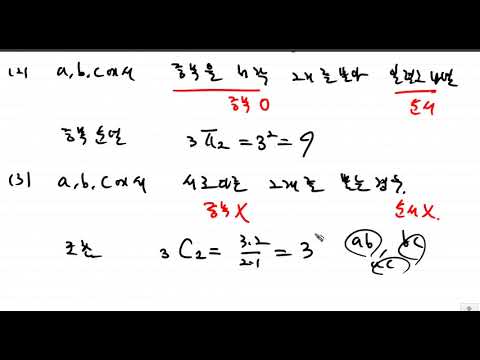 (2) a, b, c에서 중복을 허락 2개를 뽑아 일렬로 나열
중복 O 순서
중복순열 ₃π₂ = 3² = 9
(3) a, b, c에서 서로 다른 2개를 뽑는 경우.
중복 X 순서 X.
조합 ₃C₂ = 3·2/2·1 = 3 ab, bc
ac